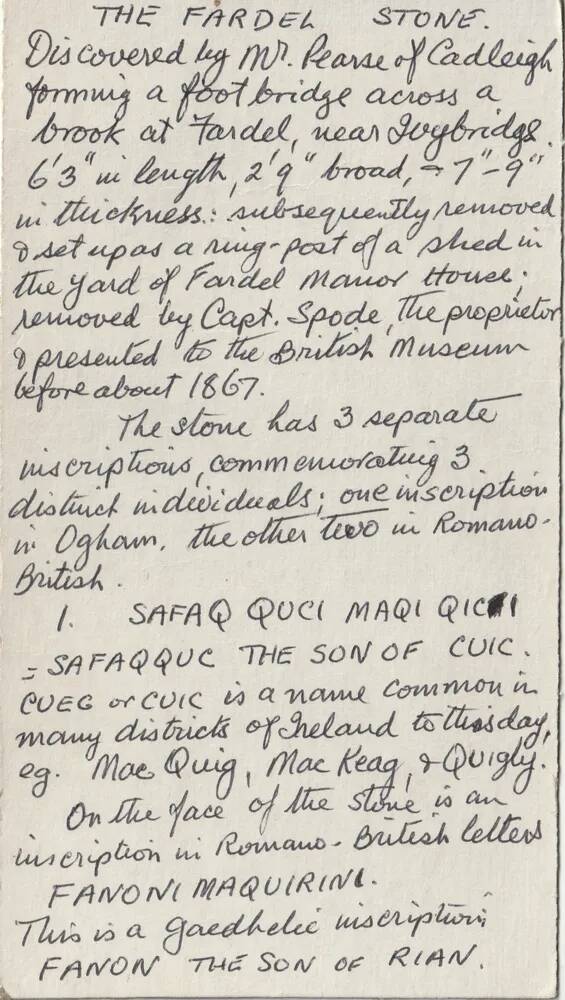 THE FARDEL STONE.
Discovered by Mr. Pearse of Cadleigh
forming a foot bridge across a
brook at Fardel, near Ivybridge.
6'3" in length, 2'9" broad, & 7"-9"
in thickness: subsequently removed
& set up as a ring-post of a shed in
the yard of Fardel Manor House;
removed by Capt. Spode, the proprietor
& presented to the British Museum
before about 1867.
The stone has 3 separate
inscriptions, commemorating 3
distinct individuals; one inscription
in Ogham, the other two in Romano-
British.
1. SAFAQ QUCI MAQI QICI
= SAFAQQUC THE SON OF CUIC.
CUEG or CUIC is a name common in
many districts of Ireland to this day,
eg. Mac Quig, Mac Keag, & Quigly.
On the face of the stone is an
inscription in Romano-British letters
FANONI MAQUIRINI.
This is a Gaedhelic inscription;
FANON THE SON OF RIAN.